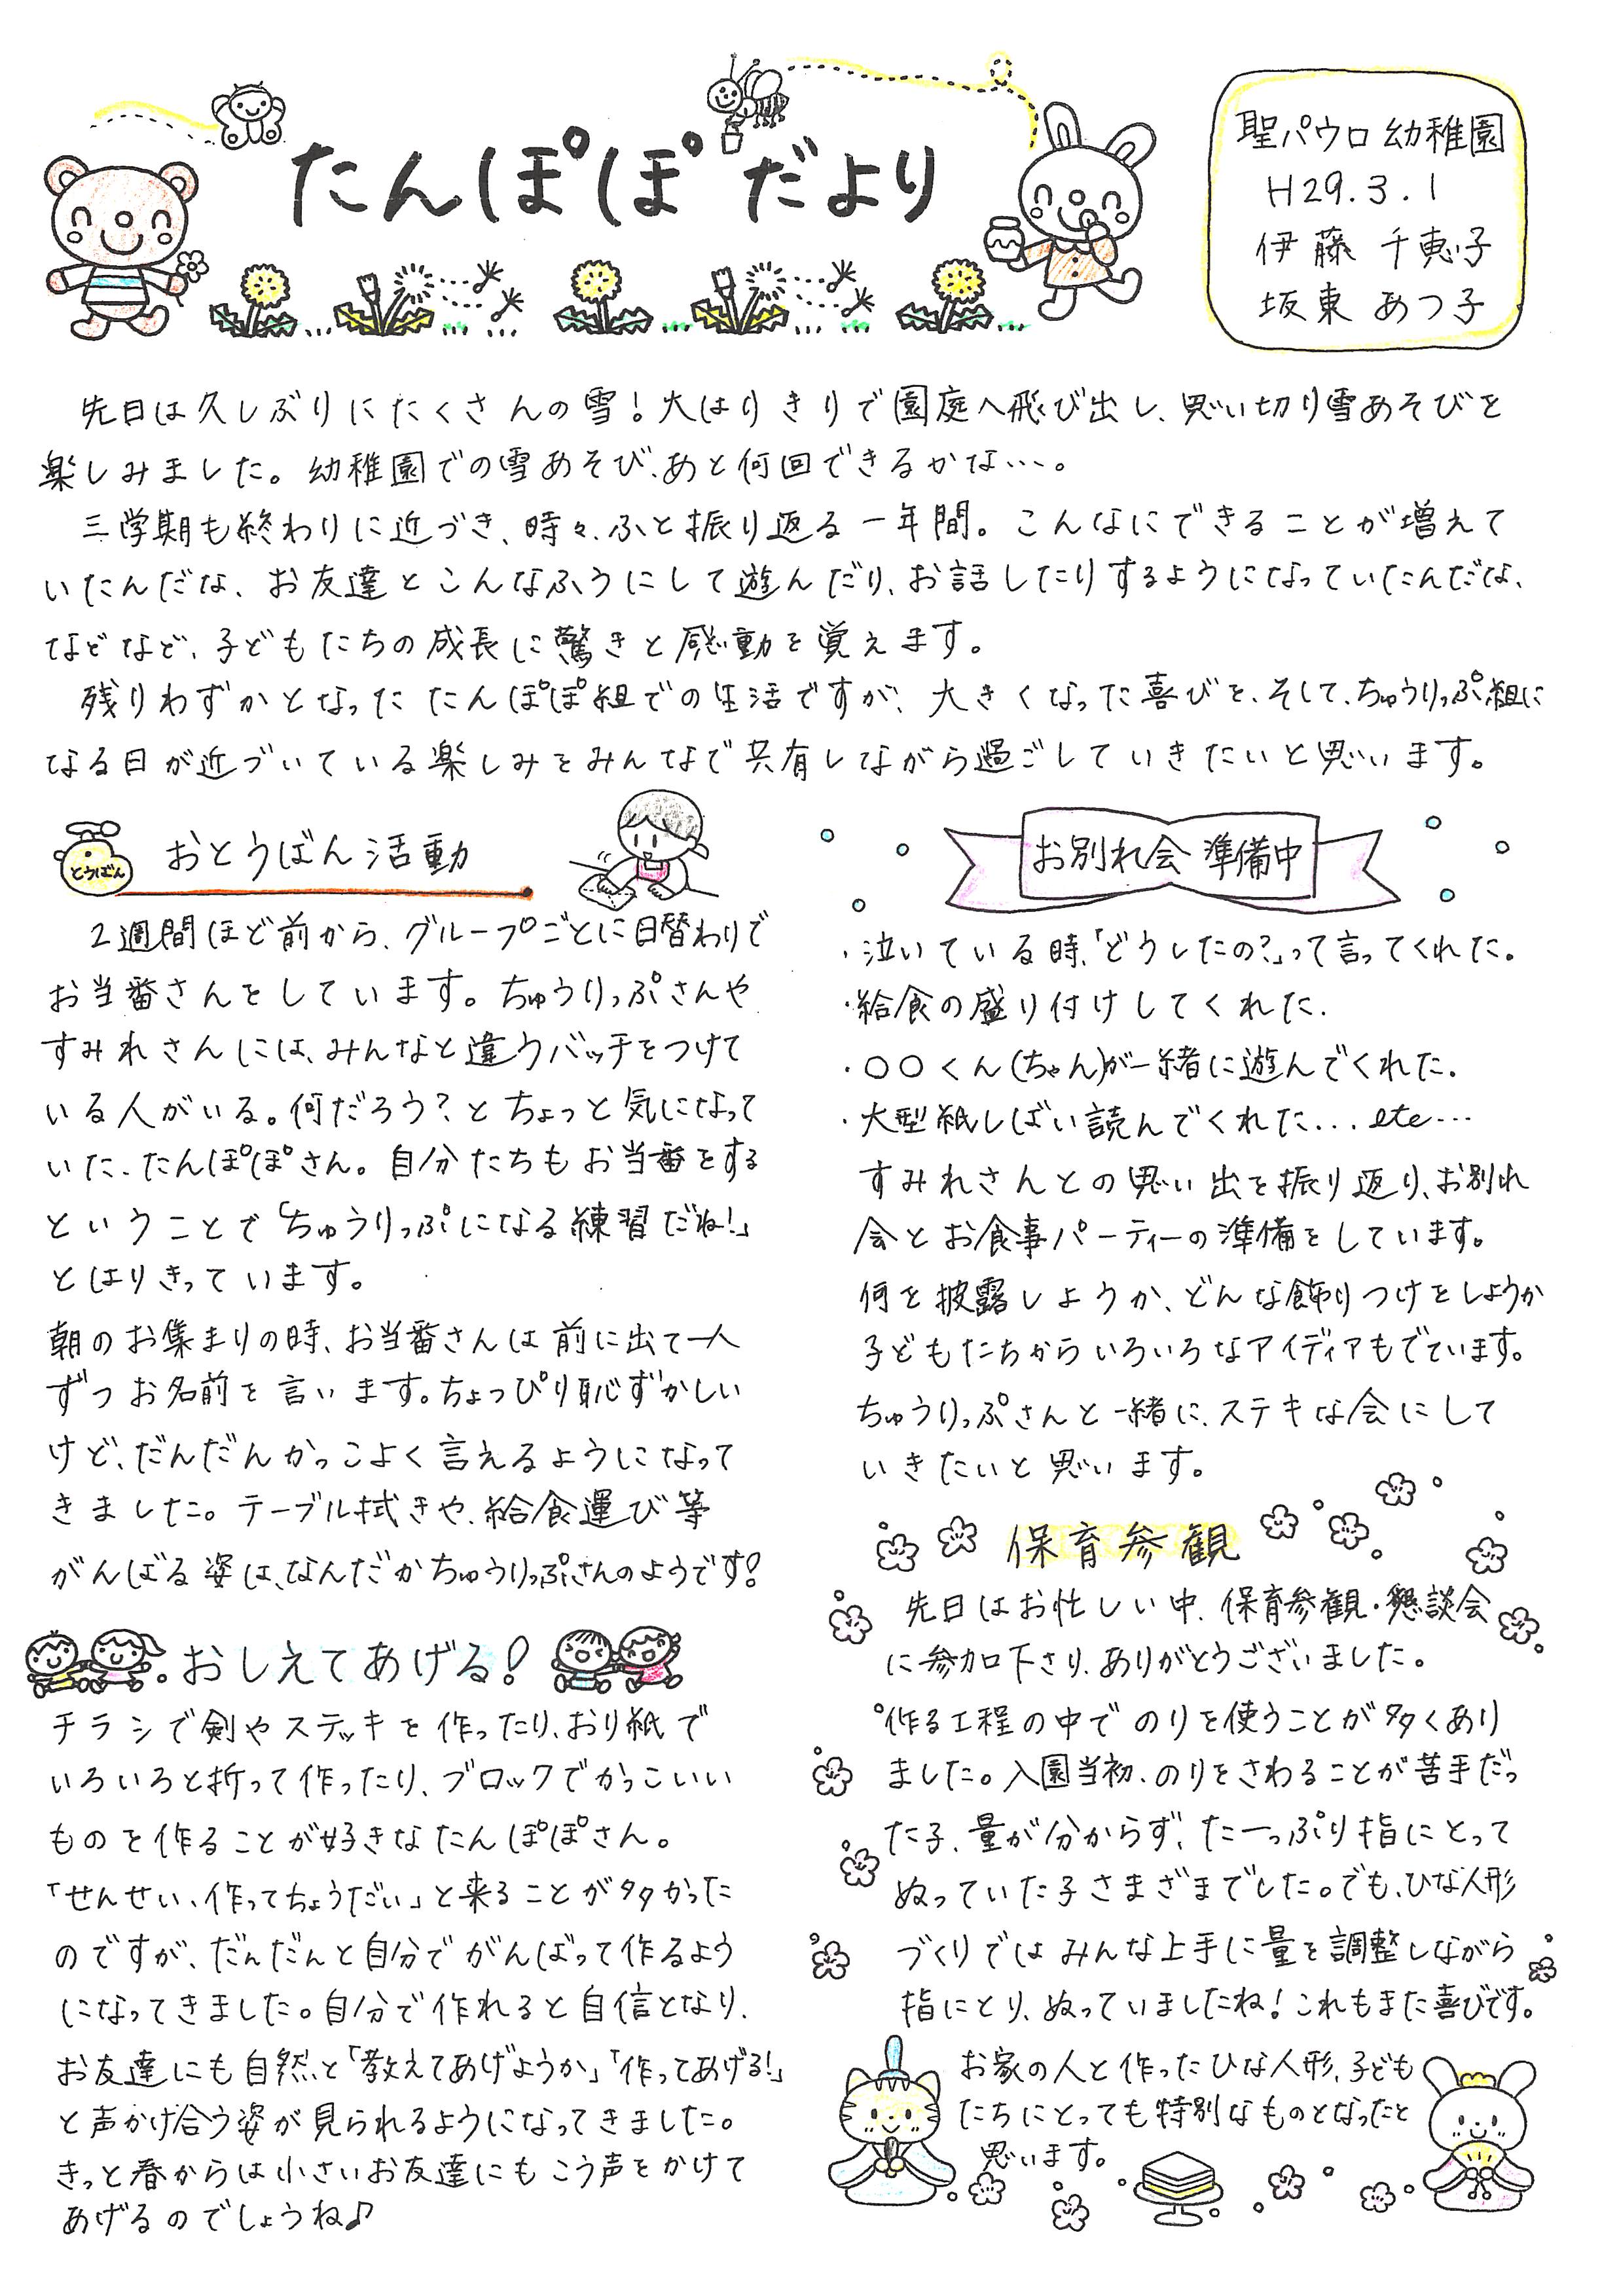 たんぽぽだより
聖パウロ幼稚園
H29.3.1
伊藤 千恵子
坂東 あつ子
先日は久しぶりにたくさんの雪！大はりきりで園庭へ飛び出し、思い切り雪あそびを
楽しみました。幼稚園での雪あそび、あと何回できるかな…。
三学期も終わりに近づき、時々、ふと振り返る一年間。こんなにできることが増えて
いたんだな、お友達とこんなふうにして遊んだり、お話したりするようになっていたんだな、
などなど、子どもたちの成長に驚きと感動を覚えます。
残りわずかとなったたんぽぽ組での生活ですが、大きくなった喜びを、そして、ちゅうりっぷ組に
なる日が近づいている楽しみをみんなで共有しながら過ごしていきたいと思います。
とうばん
おとうばん活動
2週間ほど前から、グループごとに日替わりで
お当番さんをしています。ちゅうりっぷさんや
すみれさんには、みんなと違うバッチをつけて
いる人がいる。何だろう？とちょっと気になって
いた、たんぽぽさん。自分たちもお当番をする
ということで「ちゅうりっぷになる練習だね！」
とはりきっています。
朝のお集まりの時、お当番さんは前に出て一人
ずつお名前を言います。ちょっぴり恥ずかしい
けど、だんだんかっこよく言えるようになって
きました。テーブル拭きや、給食運び等
がんばる姿は、なんだかちゅうりっぷさんのようです！
おしえてあげる！
チラシで剣やステッキを作ったり、おり紙で
いろいろと折って作ったり、ブロックでかっこいい
ものを作ることが好きなたんぽぽさん。
「せんせい、作ってちょうだい」と来ることが多かった
のですが、だんだんと自分でがんばって作るよう
になってきました。自分で作れると自信となり、
お友達にも自然と「教えてあげようか」「作ってあげる！」
と声かけ合う姿が見られるようになってきました。
きっと春からは小さいお友達にもこう声をかけて
あげるのでしょうね♪
お別れ会 準備中
・泣いている時、「どうしたの？」って言ってくれた。
・給食の盛り付けしてくれた。
・○○くん(ちゃん)が一緒に遊んでくれた。
・大型紙しばい読んでくれた…etc…
すみれさんとの思い出を振り返り、お別れ
会とお食事パーティーの準備をしています。
何を披露しようか、どんな飾りつけをしようか
子どもたちからいろいろなアイディアもでています。
ちゅうりっぷさんと一緒に、ステキな会にして
いきたいと思います。
保育参観
先日はお忙しい中、保育参観・懇談会
に参加下さり、ありがとうございました。
作る工程の中でのりを使うことが多くあり
ました。入園当初、のりをさわることが苦手だっ
た子、量が分からず、たーっぷり指にとって
ぬっていた子さまざまでした。でも、ひな人形
づくりではみんな上手に量を調整しながら
指にとり、ぬっていましたね！これもまた喜びです。
お家の人と作ったひな人形、子ども
たちにとっても特別なものとなったと
思います。